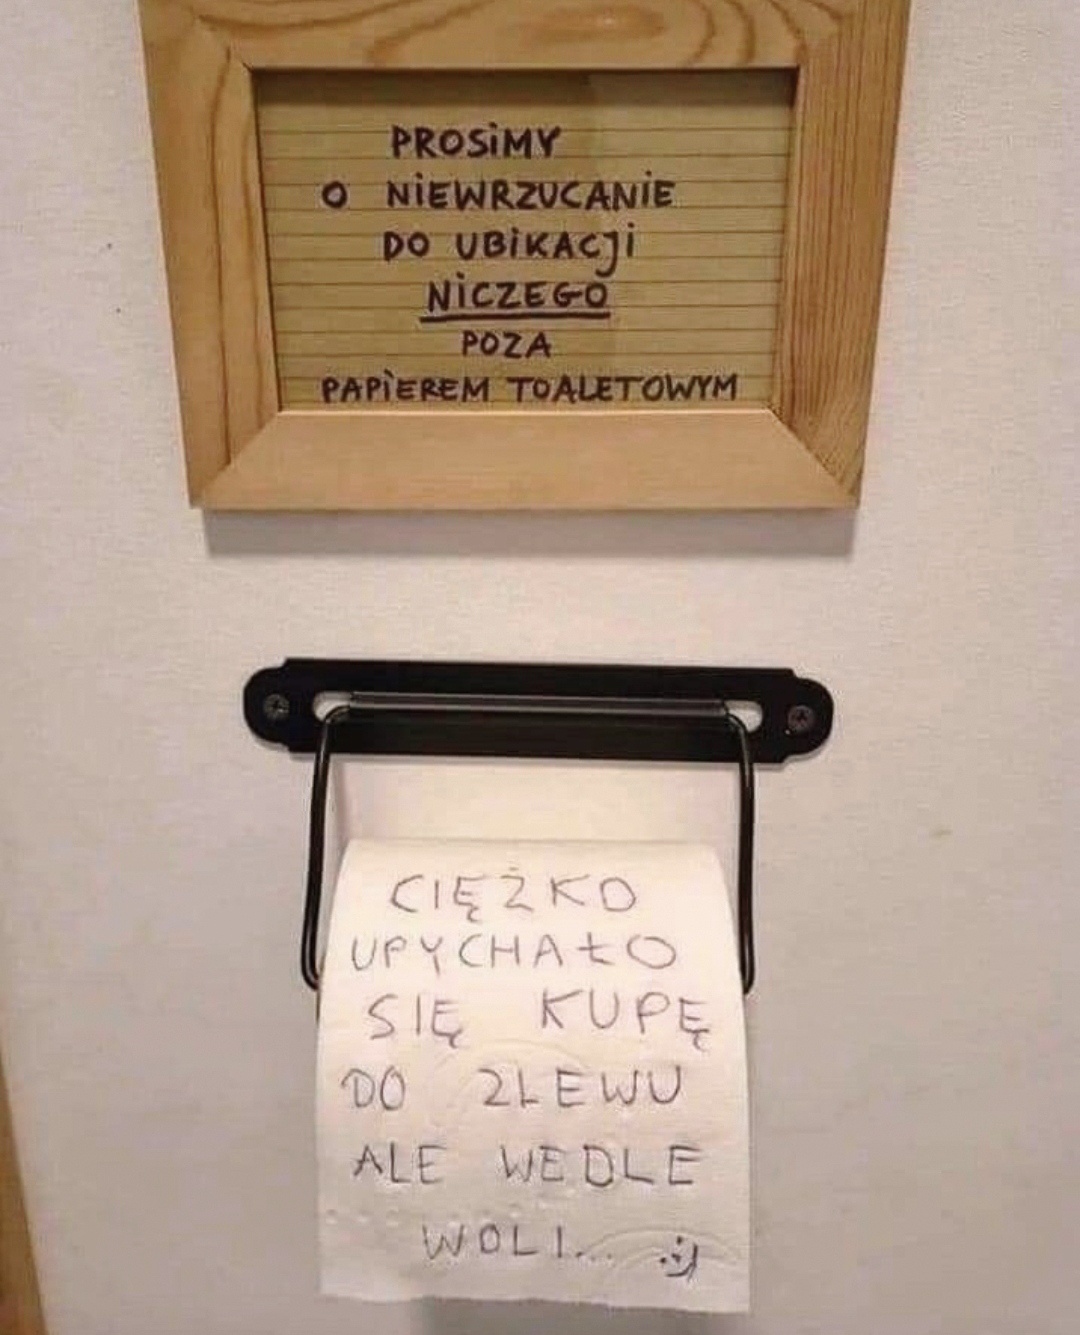 PROSIMY
O NIEWRZUCANIE
DO UBIKACJI
NICZEGO
POZA
PAPIEREM TOALETOWYM
CIĘŻKO
UPYCHAŁO
SIĘ KUPĘ
DO ZLEWU
ALE WEDLE
WOLI... :)